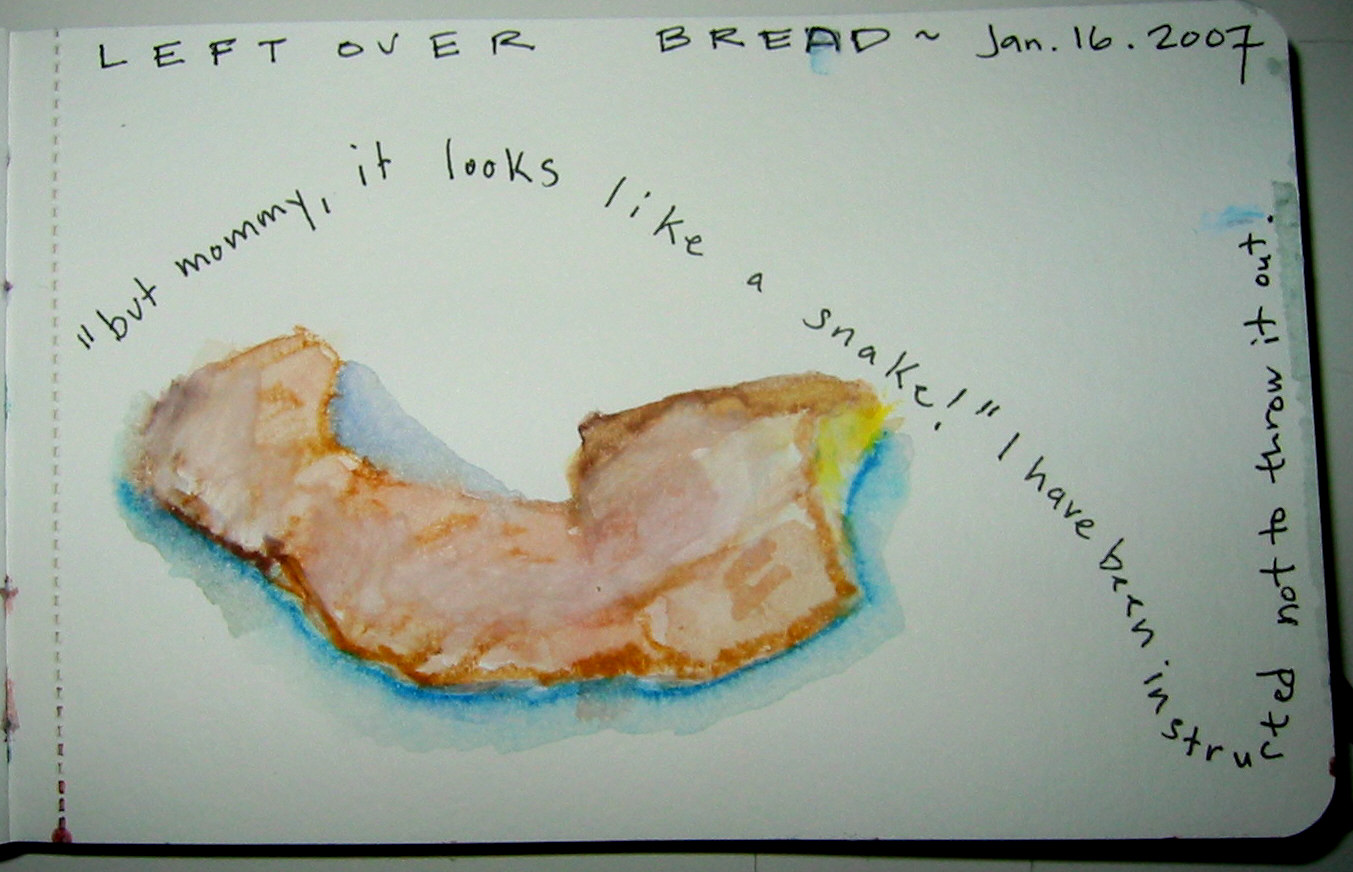 LEFT OVER BREAD ~ Jan. 16. 2007
"but mommy, it looks like a snake!" I have been instructed not to throw it out.